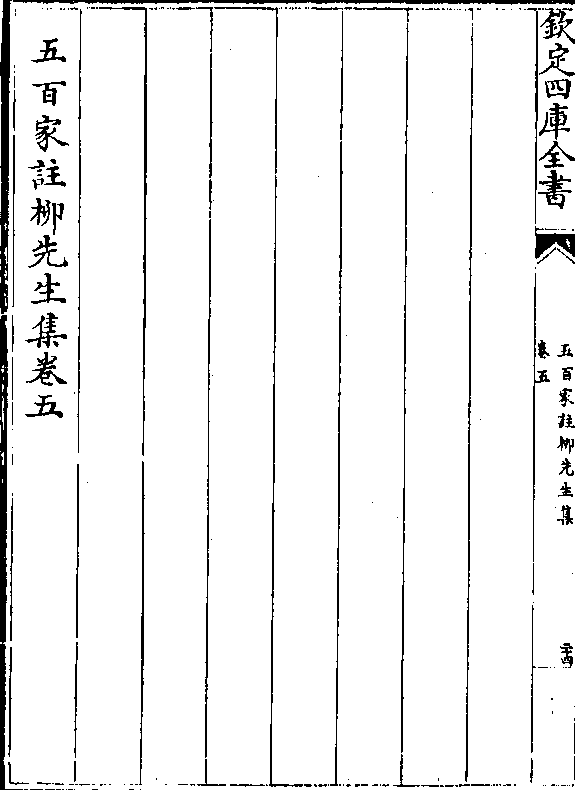 欽定四庫全書
五百家註柳先生集
卷五
二十四
五百家註柳先生集卷五